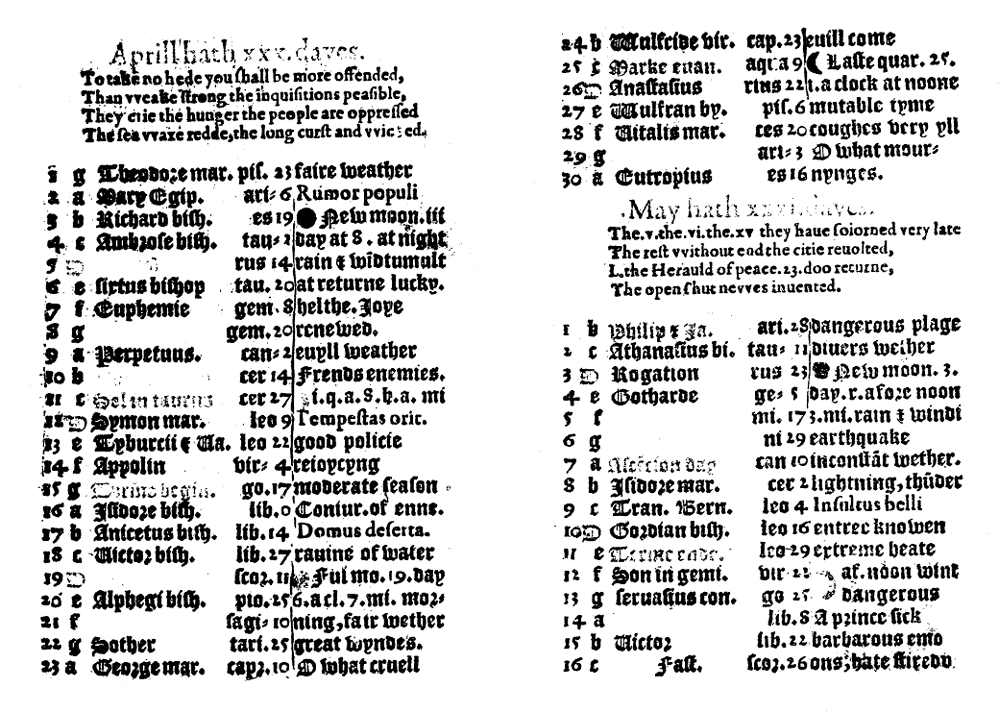 Aprill hath xxx. dayes.
To take no hede you shall be more offended,
Than vveake strong the inquisitions peasible,
They erie the hunger the people are oppressed
The sea vvaxe redde, the long curst and vvic ed.
1 g Theodoze mar. pis. 23 faire weather
2 a Mary Egip. ari= 6 Rumor populi
3 b Richard bish. es 19 New moon. iii
4 c Ambrose bish. tau= 2 day at 8. at night
5 rus 14 rain & widtumult
6 e sixtus bishop tau. 20 at returne lucky.
7 f Euphemie gem. 8 helthe. Joye
8 g gem. 20 renewed.
9 a Perpetuus. can= 2 euyll weather
10 b cer 14 Frends enemies.
11 c Sol in taurus cer 27 i.q.a.8.h.a. mi
12 D Symon mar. leo 9 Tempestas oric.
13 e Tyburcii & Ua. leo 22 good policie
14 f Appolin vir= 4 reioycyng
15 g Terme begin. go. 17 moderate season
16 a Isidore bish. lib. 0 Coniur. of enne.
17 b Anicetus bish. lib. 14 Domus deserta.
18 c Uictor bish. lib. 27 rauine of water
19 D scor. 11 Ful mo. 19. day
20 e Alphegi bish. pio. 25 6. a cl. 7. mi. mor=
21 f sagi= 10 ning, fair wether
22 g Sother tari. 25 great wyndes.
23 a George mar. capr. 10 O what cruell
24 b Wulfride vir. cap. 23 euill come
25 c Marke euan. aqua 9 Laste quar. 25.
26 D Anastasius rius 22 1. a clock at noone
27 e Wulfran by. pis. 6 mutable tyme
28 f Uitalis mar. ces 20 coughes very yll
29 g ari= 3 O what mour=
30 a Eutropius es 16 nynges.
May hath xxxi. dayes.
The. v. the. vi. the. xv they haue soiorned very late
The rest vvithout end the citie reuolted,
L. the Herauld of peace. 23. doo returne,
The open shut nevves inuented.
1 b Philip & Ja. ari. 28 dangerous plage
2 c Athanasius bi. tau= 11 diuers wether
3 D Rogation rus 23 New moon. 3.
4 e Gotharde ge= 5 day. r. afore noon
5 f mi. 17 3. mi. rain & windi
6 g ni 29 earthquake
7 a Ascēcion day can 10 inconstāt wether.
8 b Isidore mar. cer 2 lightning, thūder
9 c Tran. Bern. leo 4 Insultus belli
10 D Gordian bish. leo 16 entrec knowen
11 e Terme ende. leo 29 extreme heate
12 f Son in gemi. vir 21 af. noon wint
13 g seruasius con. go 25 dangerous
14 a lib. 8 A prince sick
15 b Uictor lib. 22 barbarous emo
16 c Fast. scor. 26 ons, hate stiredv